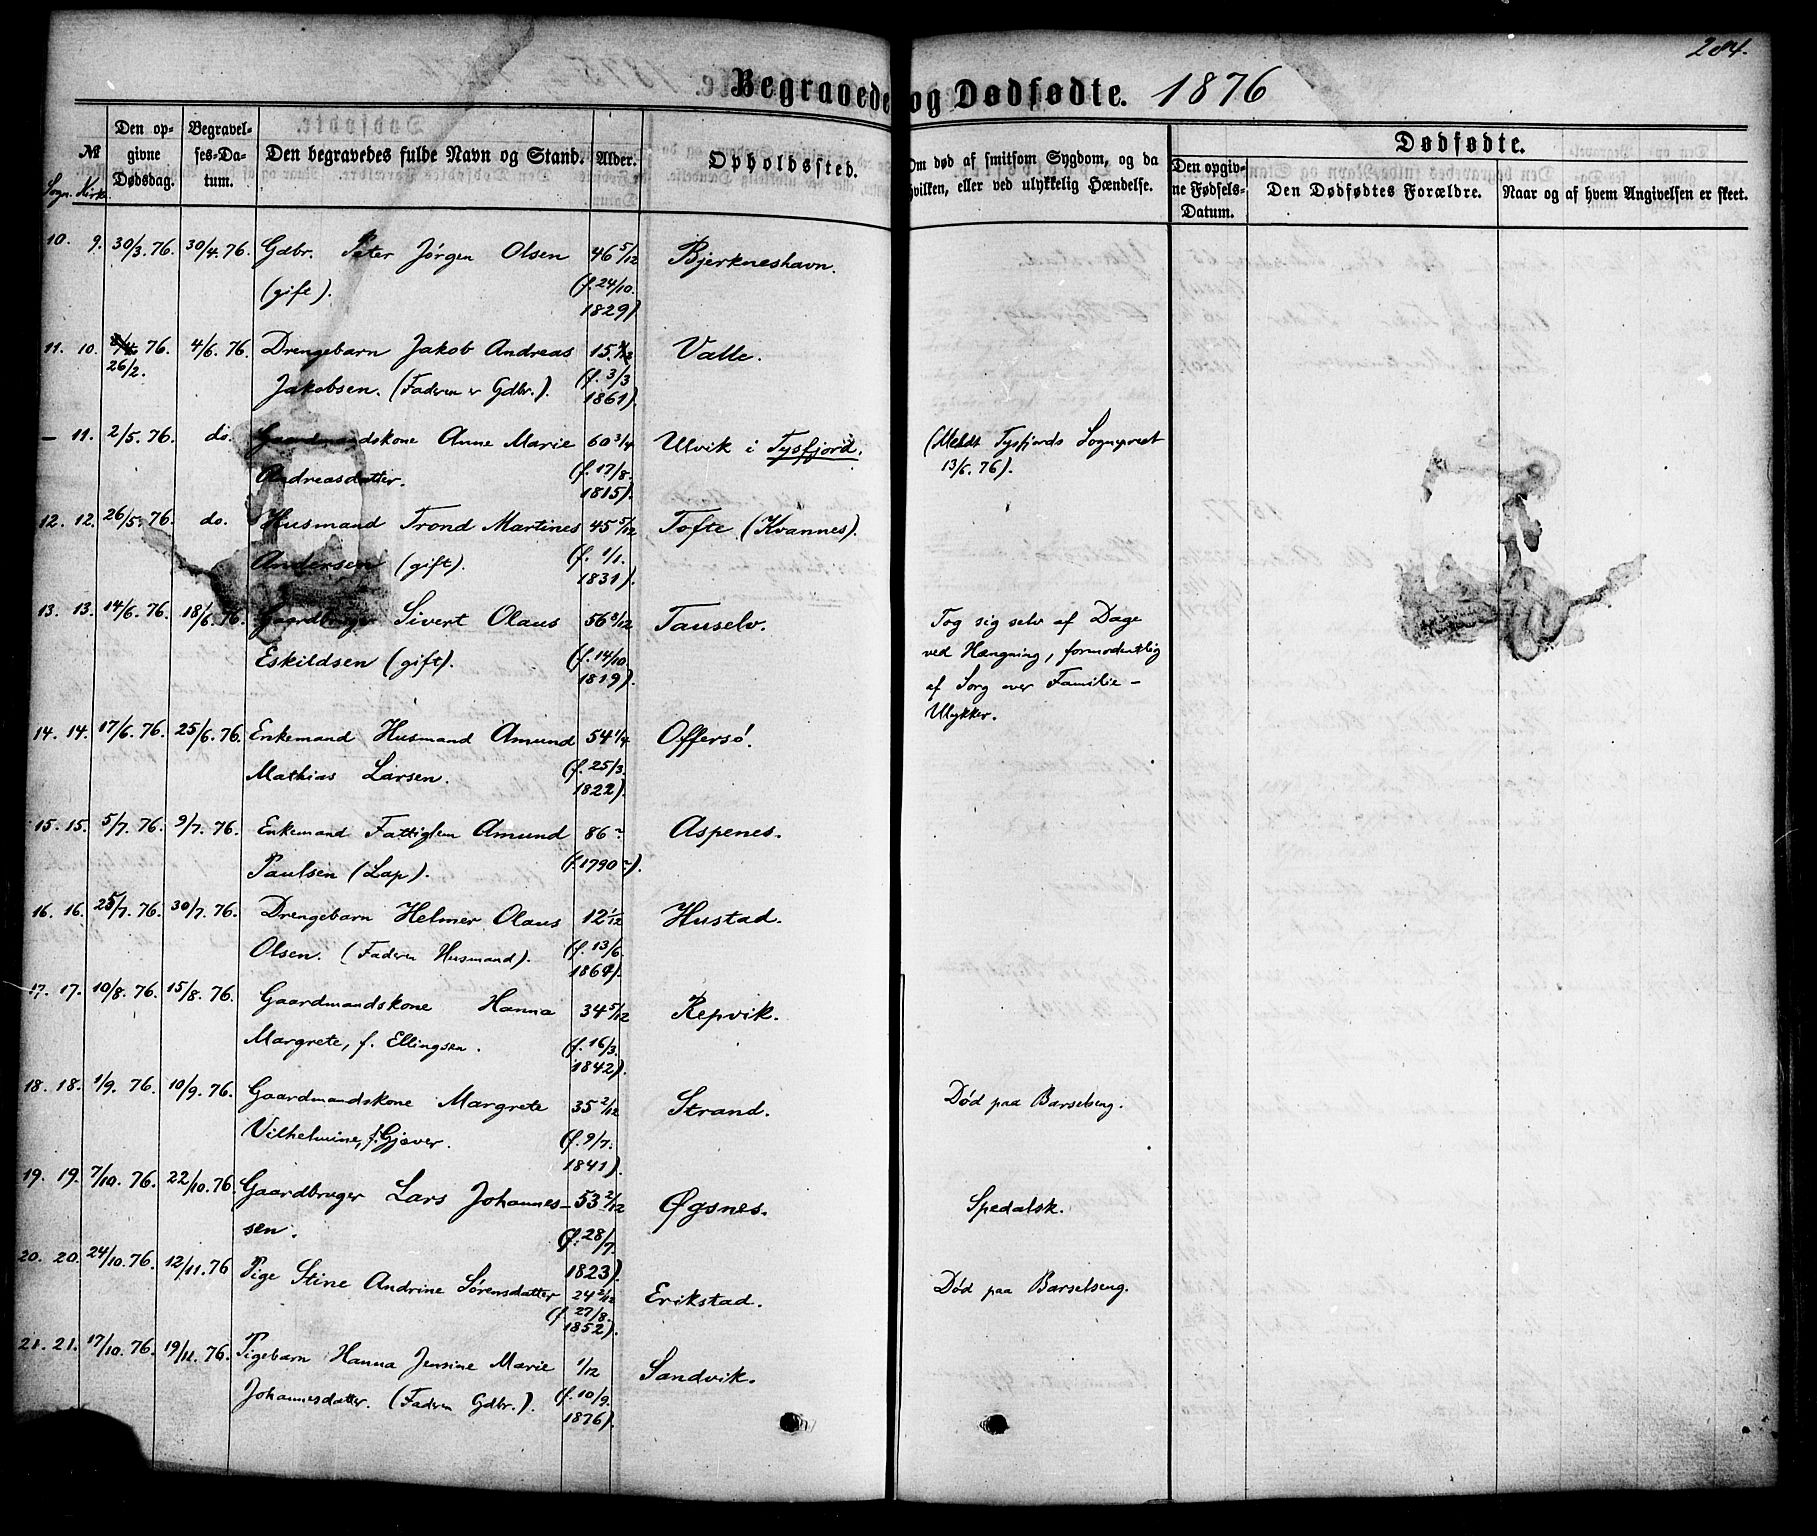 284.
Begravede og Dødfødte. 1876
№
Sogn. Kirke.
Den op-
givne
Dødsdag.
Begravel-
ses-Da-
tum.
Den begravedes fulde Navn og Stand.
Alder.
Opholdssted.
Om død af smitsom Sygdom, og da
hvilken, eller ved ulykkelig Hændelse.
Dødfødte.
Den opgiv-
ne Fødsels-
Datum.
Den Dødfødtes Forældre.
Naar og af hvem Angivelsen er skeet.
10. 9. 30/3. 76. 30/4. 76. Gdbr. Peter Jørgen Olsen 46 5/12 Bjerkneshavn.
(gift). (f. 24/10.
1829)
11. 10. 76. 4/6. 76. Drengebarn Jakob Andreas 15. Valle.
26/2. Jakobsen. (Faderen er Gdbr.). (f. 3/3
1861).
– 11. 2/5. 76. do. Gaardmandskone Anne Marie 60 3/4 Ulvik i Tysfjord. (Meldt Tysfjords Sognepræst
Andreasdatter. (f. 17/8. 13/6. 76).
1815).
12. 12. 26/5. 76. do. Husmand Trond Martines 45 5/12 Tofte (Kvannes).
Andersen (gift). (f. 1/1.
1831).
13. 13. 14/6. 76. 18/6. 76. Gaardbruger Sivert Olaus 56 8/12 Tauselv. Tog sig selv af Dage
Eskildsen (gift). (f. 14/10. ved Hængning, formodentlig
1819). af Sorg over Familie-
Ulykker.
14. 14. 17/6. 76. 25/6. 76. Enkemand Husmand Amund 54 1/4 Offersö.
Mathias Larsen. (f. 25/3.
1822).
15. 15. 5/7. 76. 9/7. 76. Enkemand Fattiglem Amund 86 ~ Aspenes.
Paulsen (Lap). (f. 1790 ~).
16. 16. 25/7. 76. 30/7. 76. Drengebarn Helmer Olaus 12 1/12 Hustad.
Olsen. (Faderen Husmand). (f. 13/6.
1864).
17. 17. 10/8. 76. 15/8. 76. Gaardmandskone Hanna 34 5/12 Repvik.
Margrete, f. Ellingsen. (f. 16/3.
1842).
18. 18. 1/9. 76. 10/9. 76. Gaardmandskone Margrete 35 2/12 Strand. Død paa Barselseng.
Vilhelmine, f. Gjæver. (f. 9/7.
1841).
19. 19. 7/10. 76. 22/10. 76. Gaardbruger Lars Johannes- 53 2/12 Øgsnes. Spedalsk.
sen. (f. 28/7.
1823).
20. 20. 24/10. 76. 12/11. 76 Pige Stine Andrine Sørensdatter 24 2/12 Erikstad. Død paa Barselseng.
(f. 27/8.
1852).
21. 21. 17/10. 76. 19/11. 76. Pigebarn Hanna Jensine Marie 1/12 Sandvik.
Johannesdatter. (Faderen Gdbr.). (f. 10/9.
1876).